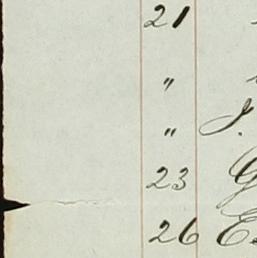 21
"
" J.
23 G
26 E